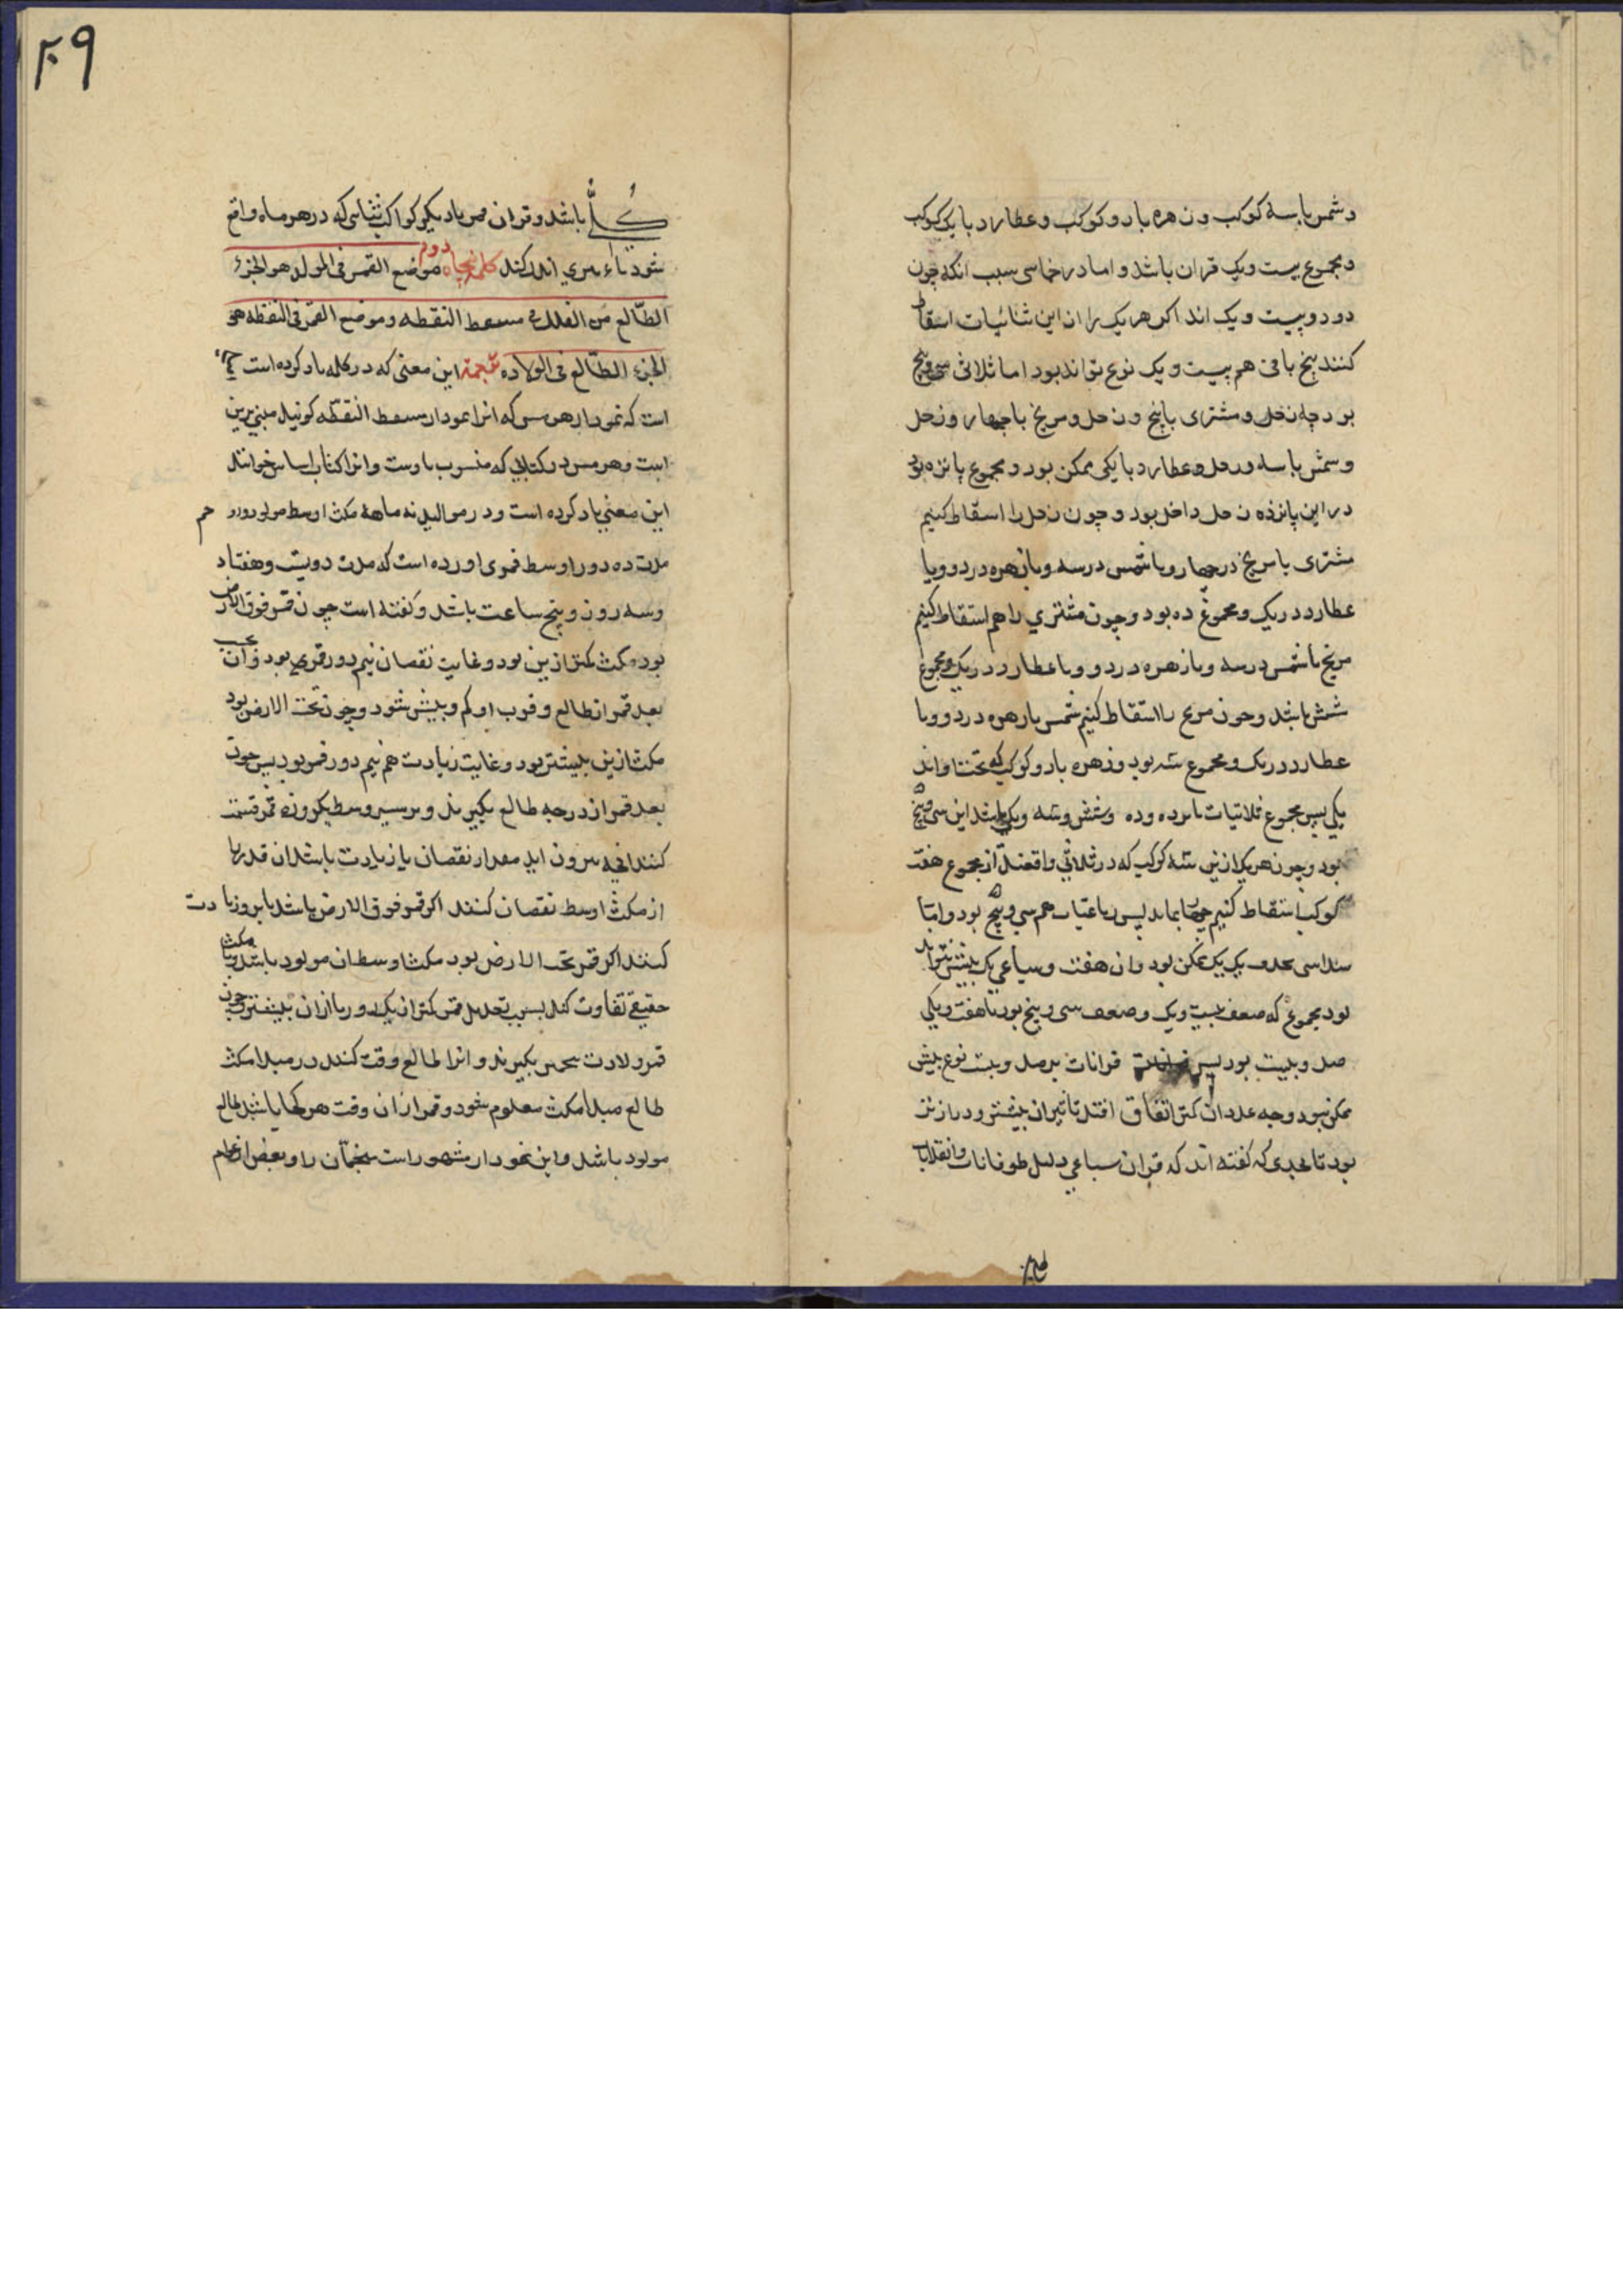 و شمس با سه کوکب و زهره با دو کوکب و عطارد با یک کوکب
و مجموع بیست و یک قران باشد و اما در خماسی بسبب انکه چون
دو دو بیست و یک اند اکر هر یک را از این ثنائیات اسقاط
کنند پنج باقی هم بیست و یک نوع تواند بود اما ثلاثی سی و پنج
بود چه زحل و مشتری با پنج و زحل و مریخ با چهار و زحل
و شمس با سه و زحل و عطارد با یکی ممکن بود و مجموع پانزده بود
در این پانزده زحل داخل بود و چون زحل را اسقاط کنیم
مشتری با مریخ در چهار و با شمس در سه و با زهره در دو و با
عطارد در یک و مجموع ده بود و چون مشتری را هم اسقاط کنیم
مریخ با شمس در سه و با زهره در دو و با عطارد در یک و مجموع
شش باشد و چون مریخ را اسقاط کنیم شمس با زهره در دو و با
عطارد در یک و مجموع سه بود و زهره با دو کوکب که تحت او اند
یکی پس مجموع ثلاثیات پانزده و ده و شش و سه و یک باشد این سی و پنج
بود و چون هر یک از این سه کوکب که در ثلاثی واقعند از مجموع هفت
کوکب اسقاط کنیم چهار بماند پس رباعیات هم سی و پنج بود و اما
سداسی بحذف یک یک ممکن بود و ان هفت و سباعی یک بیش نتواند
بود مجموع که ضعف بیست و یک و ضعف سی و پنج بود با هفت و یکی
صد و بیست بود پس قرانات بر صد و بیست نوع بیش
ممکن نبود و چه عدد ان کمتر اتفاق افتد تاثیر ان بیشتر و درازتر
بود تا بحدی که کفته اند که قران سباعی دلیل طوفانات و انقلابات
۲۰۹
کلی باشد و قران قمر با دیکر کواکب ثنایی که در هر ماه واقع
شود تاثیری اندک کند کلمه پنجاه دوم موضع القمر فی المولد هو الجزء
الطالع من الفلک فی مسقط النقطه و موضع القمر فی النقطه هو
الجزء الطالع فی الولاده ترجمه این معنی که در کلمه یاد کرده است
است که نمودار هرمس که انرا نمودار مسقط النقطه کویند مبنی برین
است و هرمس در کتابی که منسوب باوست و انرا کتاب اساس خوانند
این معنی یاد کرده است و در موالید نه ماهه مکث اوسط مولود در رحم
مدت ده دور اوسط قمری اورده است که مدت دویست و هفتاد
و سه روز و پنج ساعت باشد و کفته است چون قمر فوق الارض
بود مکث کمتر ازین بود و غایت نقصان نیم دور قمری بود و ان بحسب
بعد قمر از طالع و قرب او کم و بیش شود و چون تحت الارض بود
مکث ازین بیشتر بود و غایت زیادت هم نیم دور قمر بود پس چون
بعد قمر از درجه طالع بکیرند و بر سیر وسط یکروزه قمر قسمت
کنند انچه بیرون اید مقدار نقصان یا زیادت باشد ان قدر را
از مکث اوسط نقصان کنند اکر قمر فوق الارض باشد یا برو زیادت
کنند اکر قمر تحت الارض بود مکث اوسط ان مولود باشد و با مکث
حقیقی تفاوت کند بسبب تعدیل قمر کمتر از یک دور یا از ان بیشتر و چون
قمر ولادت بکیرند و انرا طالع وقت کنند در مبدا مکث
طالع مبدا مکث معلوم شود و قمر ازان وقت هر کجا باشد طالع
مولود باشد و این نمودار مشهور است منجمان را و بعضی از علم